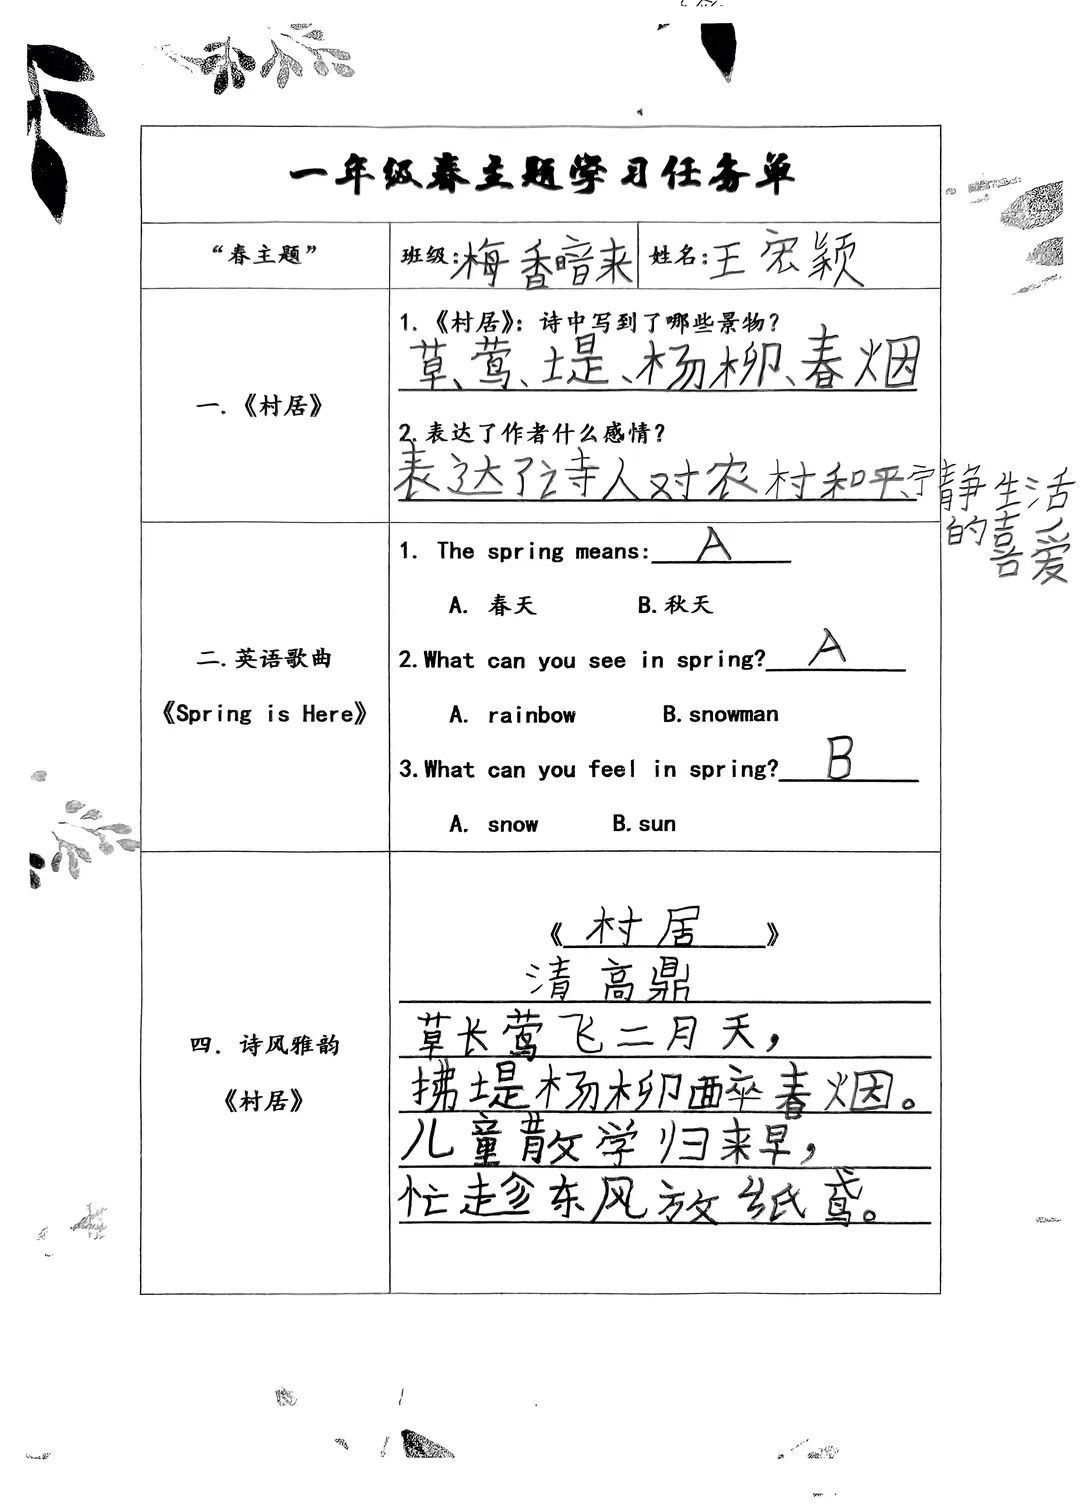 一年级春主题学习任务单
“春主题” 班级:梅香暗来 姓名:王宏颖
一.《村居》
1.《村居》:诗中写到了哪些景物?
草、莺、堤、杨柳、春烟
2.表达了作者什么感情?
表达了诗人对农村和平、宁静生活
的喜爱
二.英语歌曲
《Spring is Here》
1. The spring means: A
A. 春天 B.秋天
2.What can you see in spring? A
A. rainbow B.snowman
3.What can you feel in spring? B
A. snow B.sun
四. 诗风雅韵
《村居》
《村居》
清 高鼎
草长莺飞二月天,
拂堤杨柳醉春烟。
儿童散学归来早,
忙趁东风放纸鸢。